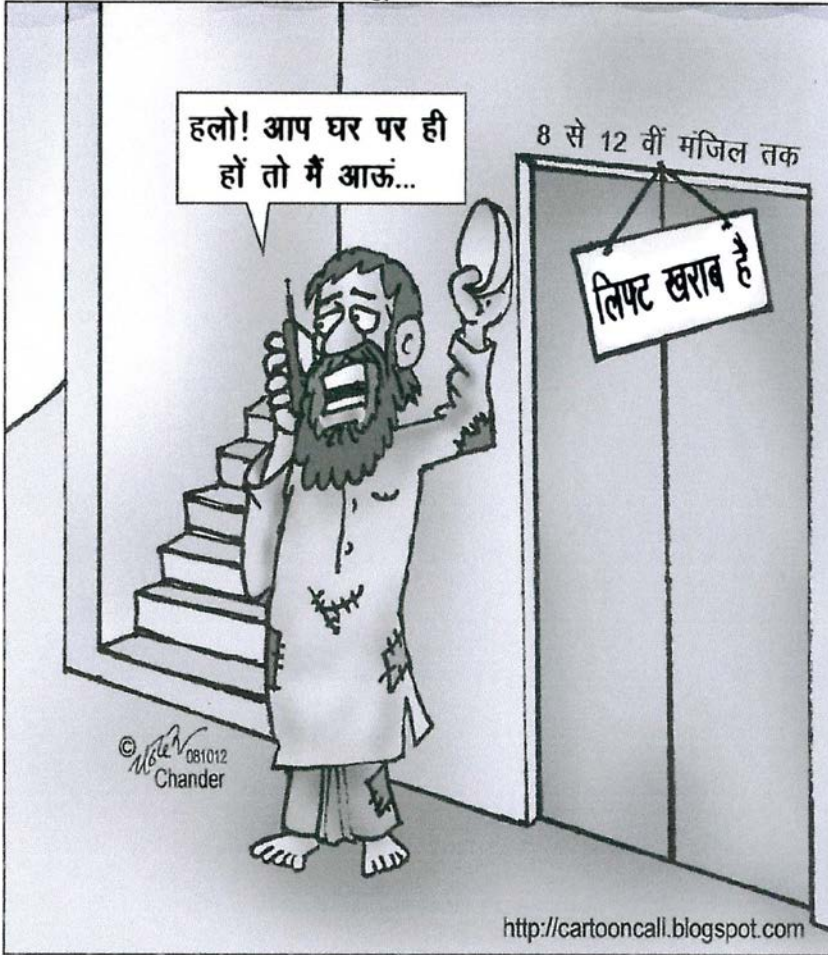 हलो! आप घर पर ही
हों तो मैं आऊं...
8 से 12 वीं मंजिल तक
लिफ्ट खराब है
© 081012
Chander
http://cartooncall.blogspot.com